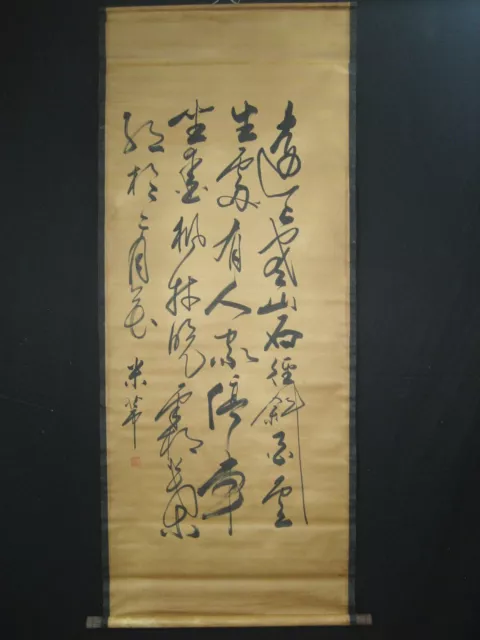 遠上寒山石徑斜白雲
生處有人家停車
坐愛楓林晚霜葉
紅於二月花
米芾